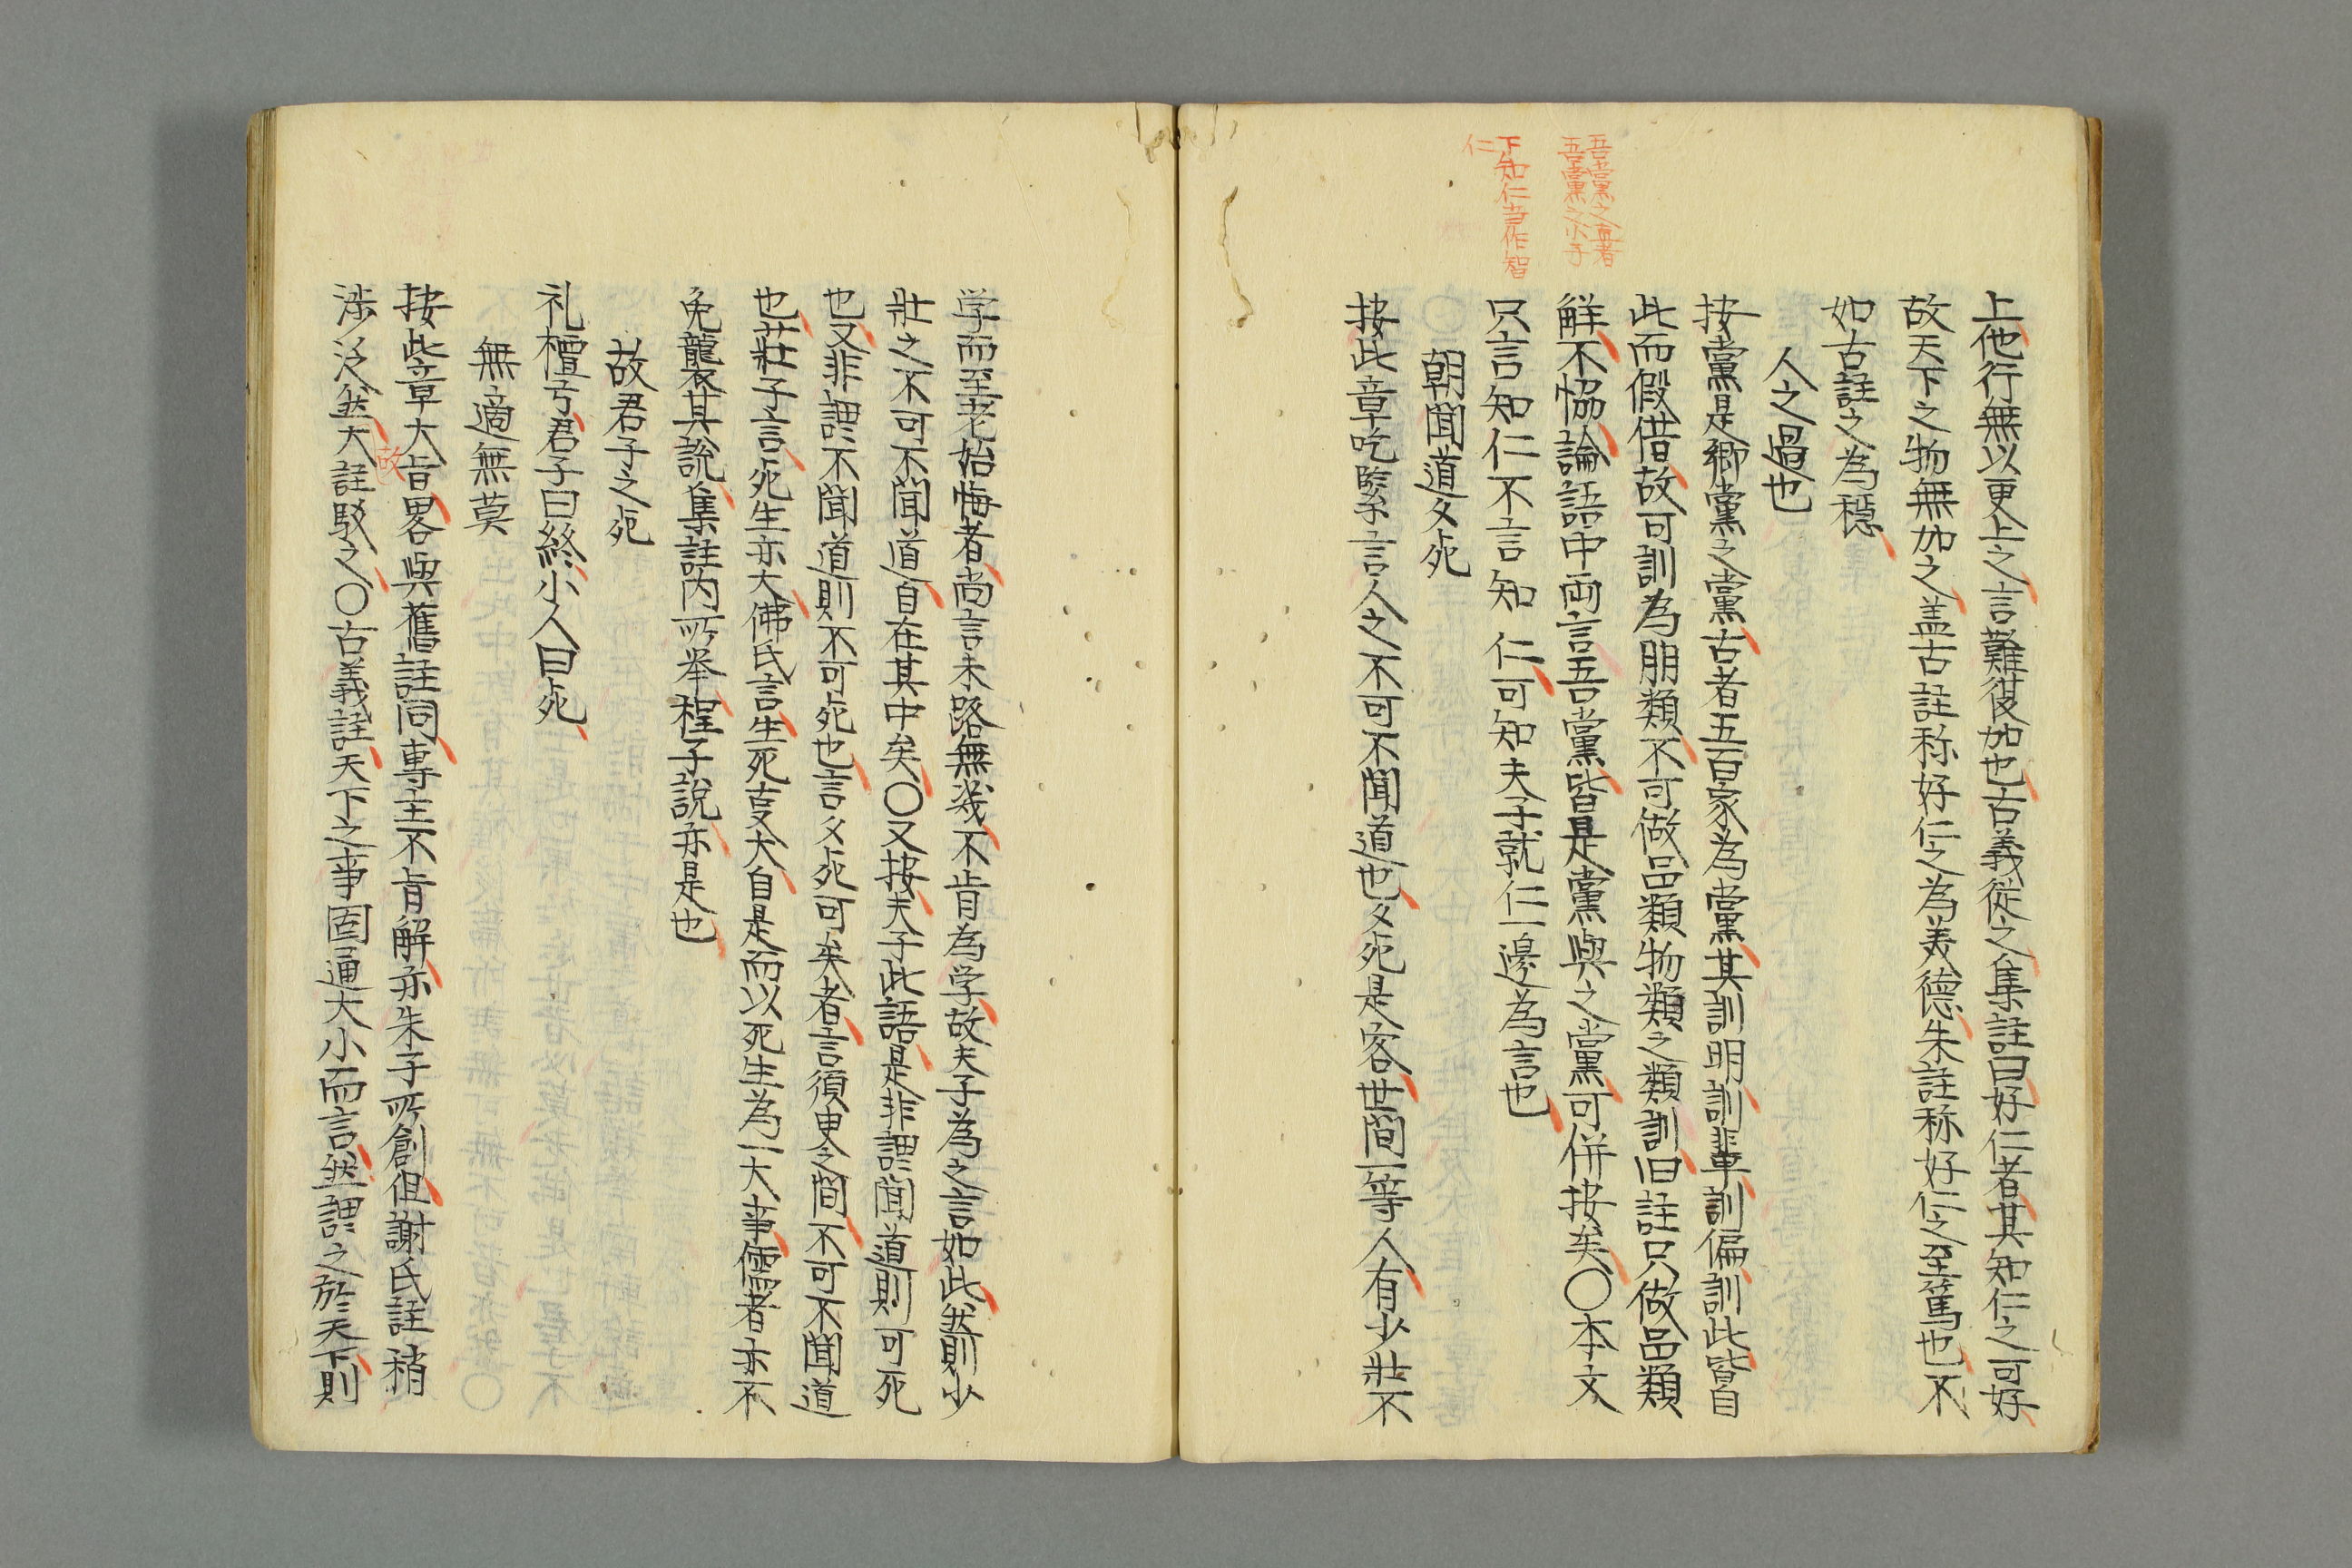 上他行無以更上之言難復加也古義従之集註曰好仁者其知仁之可好
故天下之物無加之盖古註称好仁之為美德朱註称好仁之至篤也不
如古註之為穏
人之過也
按黨是郷黨之黨古者五百家為黨其訓明訓輩訓偏訓此皆自
此而假借故可訓為朋類不可做品類物類之類訓旧註只做品類
觧不恊論語中両言吾黨皆是黨與之黨可併按矣〇本文
只言知仁不言知仁可知夫子就仁一邊為言也
朝聞道夕死
按此章吃緊言人之不可不聞道也夕死是客世間一等人有少壮不
吾黨之直者
吾黨之小子
下知仁当作智
仁
学而至老始悔者尚言未路無幾不肯為学故夫子為之言如此然則少
壮之不可不聞道自在其中矣〇又按夫子此語是非謂聞道則可死
也又非謂不聞道則不可死也言夕死可矣者言須臾之間不可不聞道
也荘子言死生亦大佛氏言生死事大自是而以死生為一大事儒者亦不
免襲其説集註内所举程子説亦是也
故君子之死
礼檀弓君子曰終小人曰死
無適無莫
按此章大旨畧與舊註同専主不肯解亦朱子所創但謝氏註稍
渉泛然大註駁之〇古義註天下之事固通大小而言然謂之於天下則
故